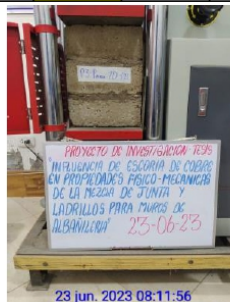 PROYECTO DE INVESTIGACION TESIS
"INFLUENCIA DE ESCORIA DE COBRE
EN PROPIEDADES FISICO-MECANICAS
DE LA MEZCLA DE JUNTA Y
LADRILLOS PARA MUROS DE
ALBAÑILERIA" 23-06-23
23 jun. 2023 08:11:56